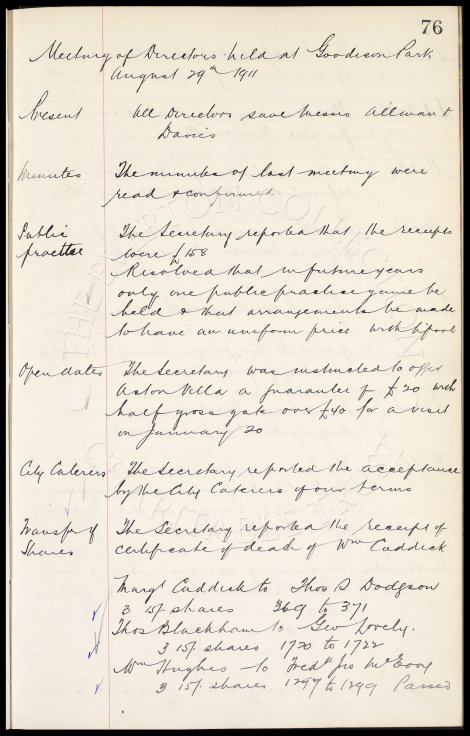 76
Meeting of Directors held at Goodison Park
August 29th 1911
Present All Directors save Messrs Allman &
Davies
Minutes The minutes of last meeting were
read & confirmed
Public The Secretary reported that the receipts
practice were £158
Resolved that in future years
only one public practice game be
held & that arrangements be made
to have an uniform price with L'pool
Open dates The Secretary was instructed to offer
Aston Villa a guarantee of £20 with
half gross gate over £40 for a visit
on January 20
City Caterers The Secretary reported the acceptance
by the City Caterers of our terms
Transfer of The Secretary reported the receipt of
Shares certificate of death of Wm Cuddick
Margt Cuddick to Thos B Dodgson
3 15/ shares 369 to 371
Thos Blackham to Geo Lovely.
3 15/ shares 1720 to 1722
Wm Hughes to Fredk Jno McEvoy
3 15/ shares 1297 to 1299 Passed